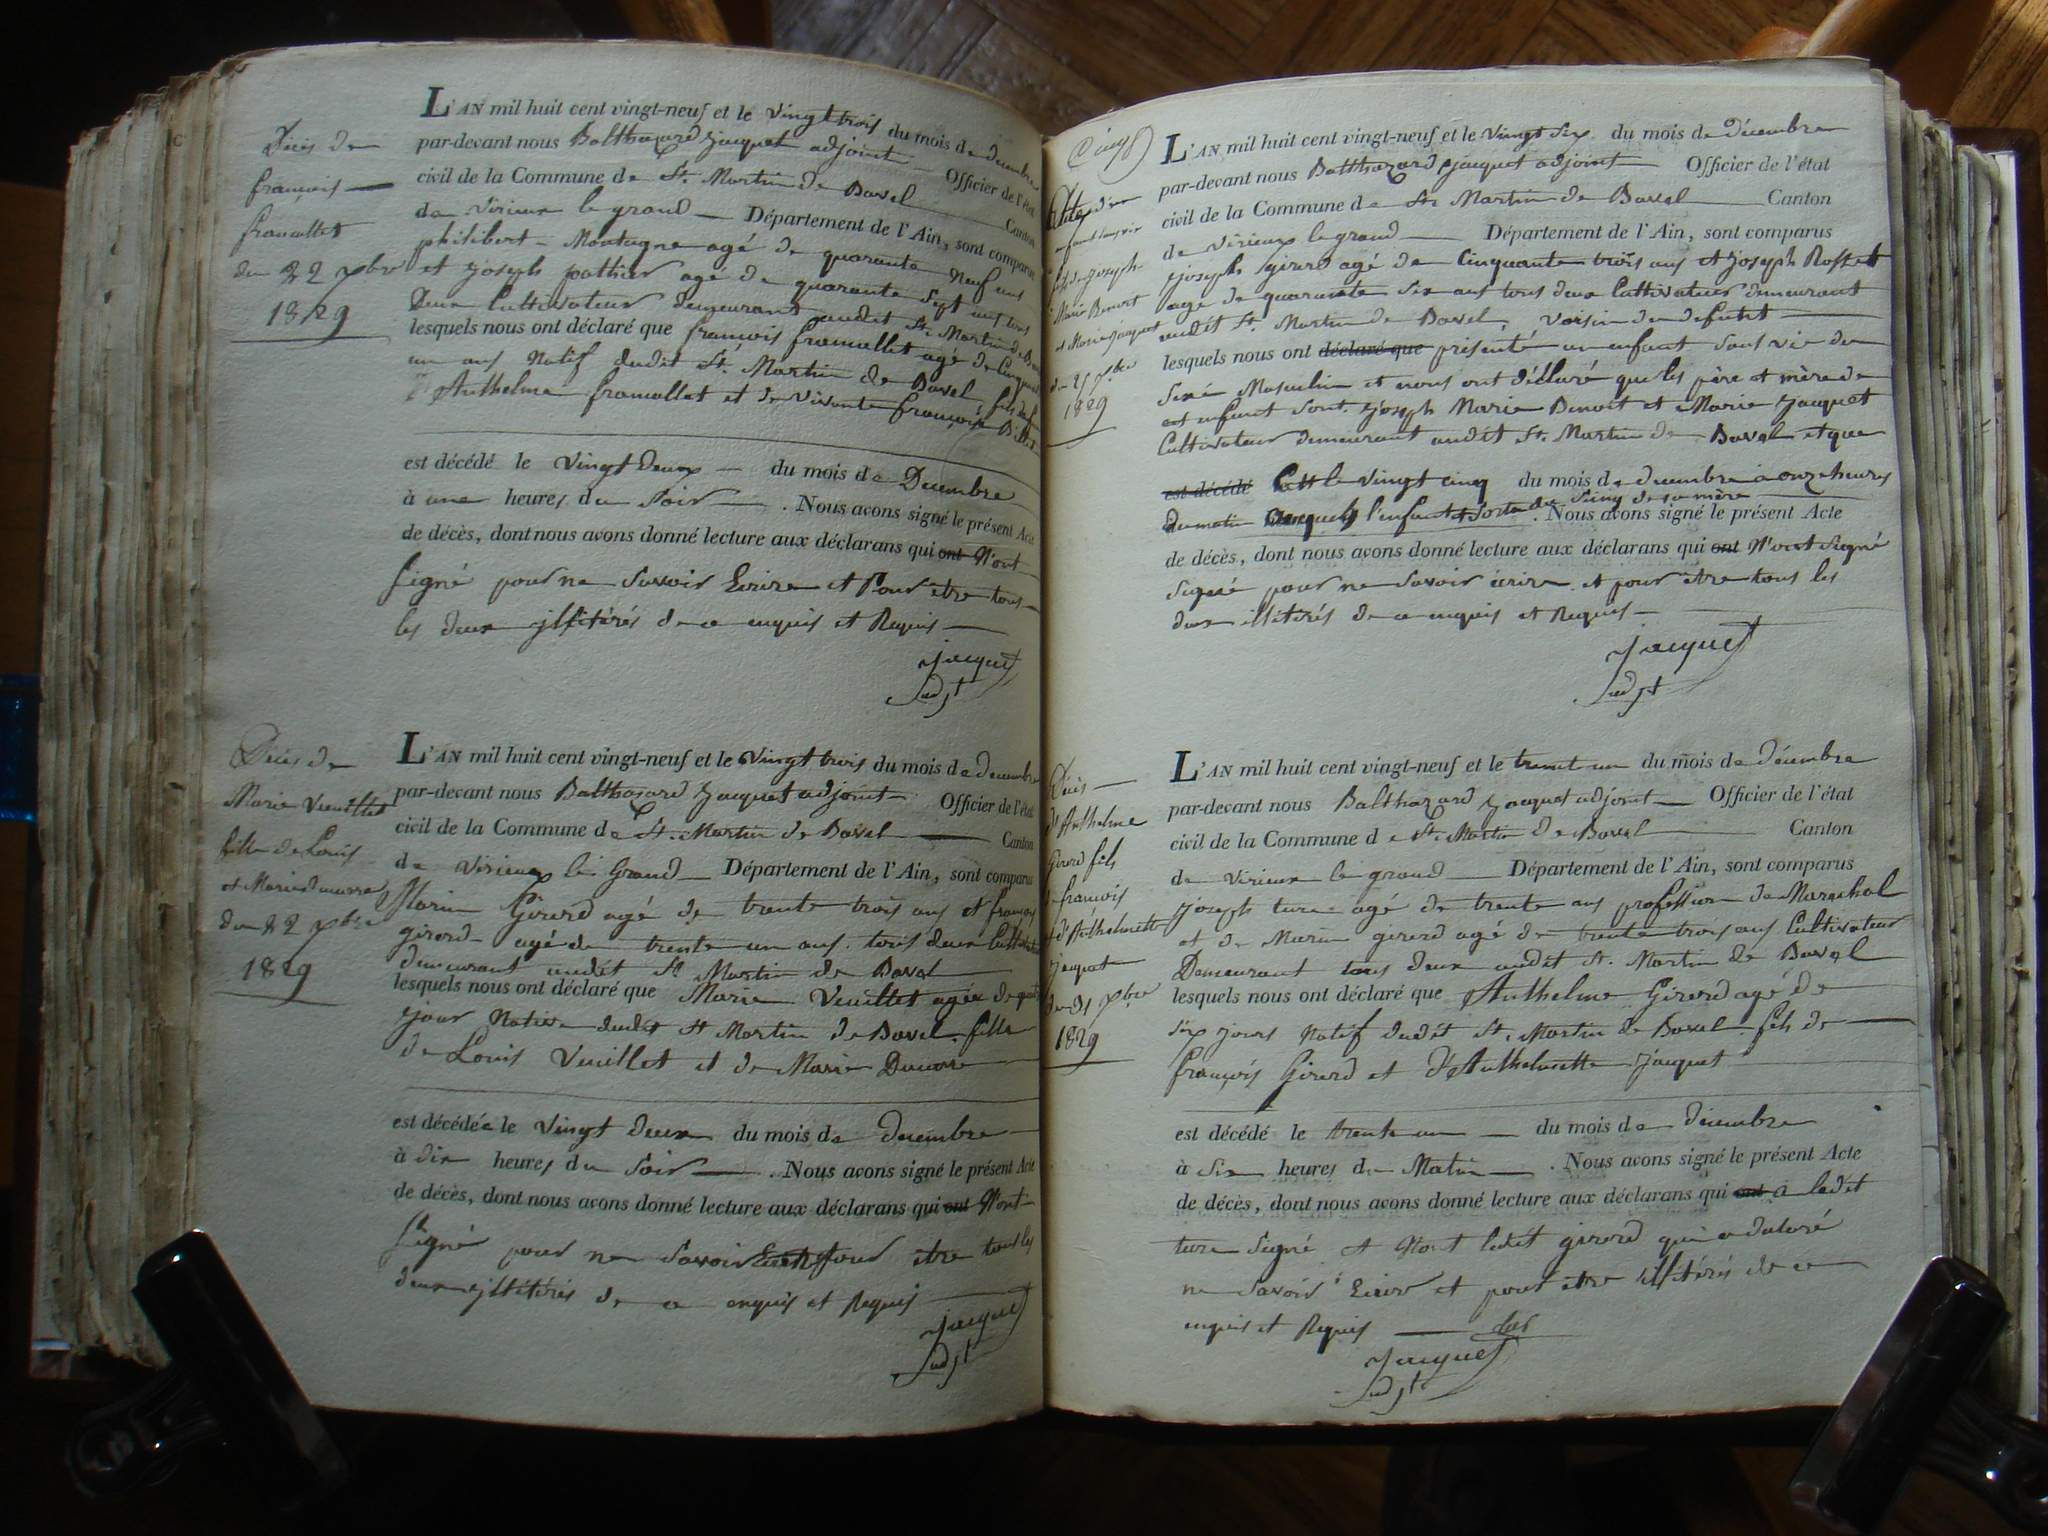 Décès de
françois
framollet
du 22 xbre
1829
L'AN mil huit cent vingt-neuf et le vingt trois du mois de decembre
par-devant nous Balthazard jacquet adjoint Officier de l'état
civil de la Commune de St. Martin de Bavel Canton
de virieux le grand Département de l'Ain, sont comparus
philibert Montagne agé de quarante neuf ans
et joseph pothier agé de quarante sept ans tous
Deux Cultivateur demeurant audit St. Martin de
lesquels nous ont déclaré que françois framollet agé de
un ans Natif dudit St. Martin de Bavel fils de
d'Anthelme framollet et de vivante françoise
est décédé le vingt deux du mois de Decembre
à une heures du Soir . Nous avons signé le présent Acte
de décès, dont nous avons donné lecture aux déclarans qui ont N'ont
Signé pour ne Savoir Ecrire et Pour etre tous
les deux illitérés de ce enquis et Requis
jacquet
adjt
Décès de
Marie Vuillet
fille de Louis
et Marie
du 22 xbre
1829
L'AN mil huit cent vingt-neuf et le vingt trois du mois de decembre
par-devant nous Balthazard jacquet adjoint Officier de l'état
civil de la Commune de St. Martin de Bavel Canton
de virieux le Grand Département de l'Ain, sont comparus
Marin Girerd agé de trente trois ans et françois
girerd agé de trente un ans tous deux
demeurant audit St Martin de Bavel
lesquels nous ont déclaré que Marie Veuillet agée de
jour Native dudit St Martin de Bavel fille
de Louis Veuillet et de Marie
est décédée le vingt deux du mois de decembre
à dix heures du Soir . Nous avons signé le présent Acte
de décès, dont nous avons donné lecture aux déclarans qui ont N'ont
Signé pour ne Savoir Ecrire pour etre tout les
deux illitérés de ce enquis et Requis
jacquet
adjt
d'un
enfant sans vie
fils de joseph
Marie Benoit
et Marie jacquet
du 25 xbre
1829
L'AN mil huit cent vingt-neuf et le vingt six du mois de décembre
par-devant nous Balthazard jacquet adjoint Officier de l'état
civil de la Commune de St Martin de Bavel Canton
de virieux le grand Département de l'Ain, sont comparus
joseph girerd agé de cinquante trois ans et joseph Rosset
agé de quarante six ans tous deux Cultivateur demeurant
audit St. Martin de Bavel, voisin du defunt
lesquels nous ont déclaré que présenté un enfant sans vie du
Sexé Masculin et nous ont déclaré que les père et mère de
cet enfant sont joseph Marie Benoit et Marie jacquet
Cultivateur demeurant audit St. Martin de Bavel et que
est décédé le vingt cinq du mois de decembre à onze heures
du matin l'enfant est sorti du Seing de sa mère . Nous avons signé le présent Acte
de décès, dont nous avons donné lecture aux déclarans qui ont N'ont Signé
Signé pour ne Savoir écrire et pour être tous les
deux illitérés de ce enquis et Requis
jacquet
adjt
Décès
d'Anthelme
Girerd fils
de françois
et d'Anthelmette
jacquet
du 31 xbre
1829
L'AN mil huit cent vingt-neuf et le trente un du mois de décembre
par-devant nous Balthazard jacquet adjoint Officier de l'état
civil de la Commune de St. Martin de Bavel Canton
de virieux le grand Département de l'Ain, sont comparus
joseph ture agé de trente ans profession de Marechal
et de Marin girerd agé de trente trois ans Cultivateur
Demeurant tous deux audit St. Martin de Bavel
lesquels nous ont déclaré que Anthelme Girerd agé de
six jours Natif dudit St. Martin de Bavel fils de
françois Girerd et d'Anthelmette jacquet
est décédé le trente un du mois de décembre
à Six heures du Matin . Nous avons signé le présent Acte
de décès, dont nous avons donné lecture aux déclarans qui ont a ledit
ture Signé et Non ledit girerd qui a déclaré
ne Savoir Ecrire et pour être illitérés de ce
enquis et Requis
jacquet
adjt